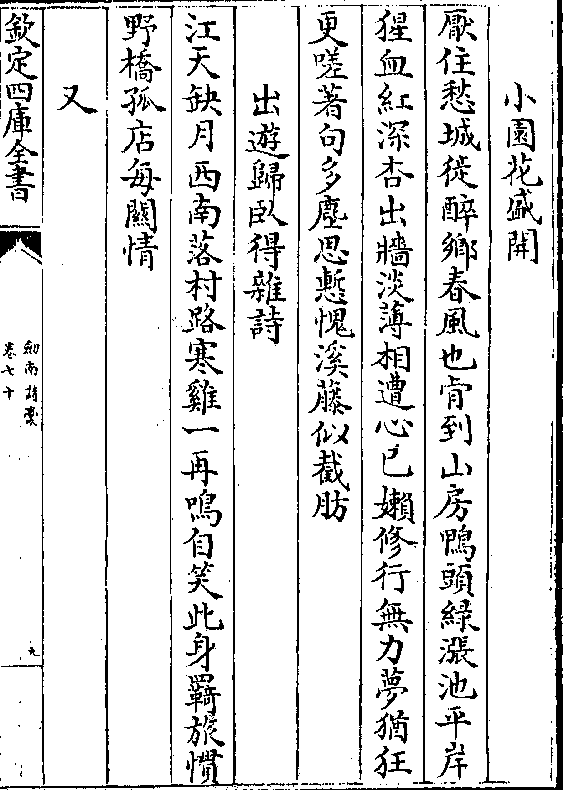 小園花盛開
厭住愁城徙醉鄉春風也肯到山房鴨頭緑漲池平岸
猩血紅深杏出牆淡薄相遭心已嬾修行無力夢猶狂
更嗟著句多塵思慙愧溪藤似截肪
出遊歸臥得雜詩
江天缺月西南落村路寒雞一再鳴自笑此身羇旅慣
野橋孤店每關情
又
欽定四庫全書
劒南詩藁
卷七十
九